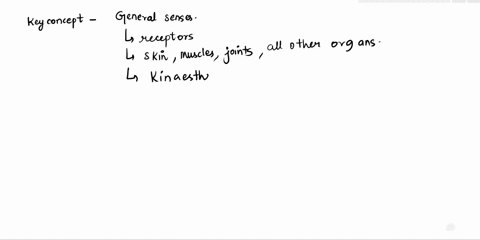 Key concept - General senses.
↳ receptors
↳ skin, muscles, joints, all other organs.
↳ Kinaesth